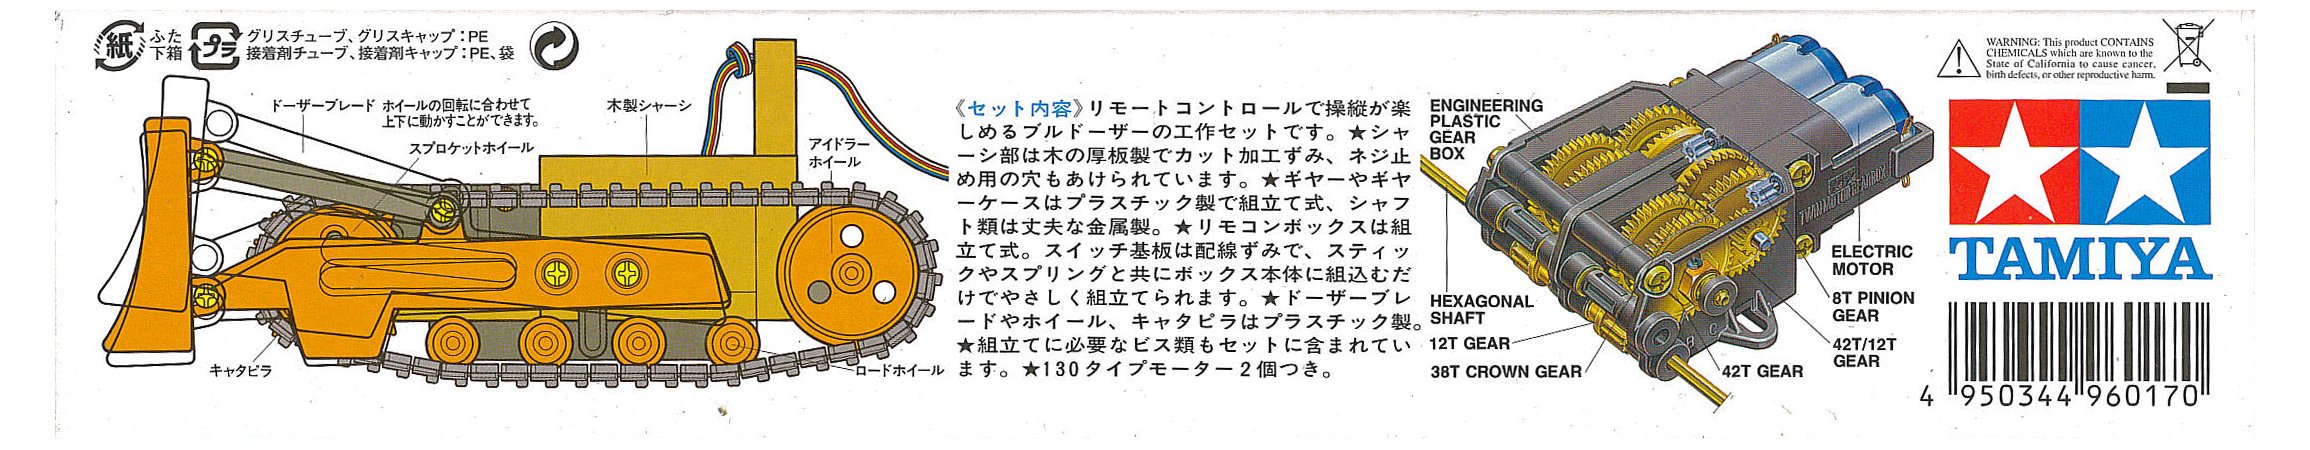 紙 ふた
下箱
プラ グリスチューブ、グリスキャップ：PE
接着剤チューブ、接着剤キャップ：PE、袋
ドーザーブレード ホイールの回転に合わせて
上下に動かすことができます。
スプロケットホイール
木製シャーシ
アイドラー
ホイール
キャタピラ
ロードホイール
《セット内容》リモートコントロールで操縦が楽
しめるブルドーザーの工作セットです。★シャ
ーシ部は木の厚板製でカット加工ずみ、ネジ止
め用の穴もあけられています。★ギヤーやギヤ
ーケースはプラスチック製で組立て式、シャフ
ト類は丈夫な金属製。★リモコンボックスは組
立て式。スイッチ基板は配線ずみで、スティッ
クやスプリングと共にボックス本体に組込むだ
けでやさしく組立てられます。★ドーザーブレ
ードやホイール、キャタピラはプラスチック製。
★組立てに必要なビス類もセットに含まれてい
ます。★130タイプモーター2個つき。
ENGINEERING
PLASTIC
GEAR
BOX
HEXAGONAL
SHAFT
12T GEAR
38T CROWN GEAR
42T GEAR
ELECTRIC
MOTOR
8T PINION
GEAR
42T/12T
GEAR
C
B
WARNING: This product CONTAINS
CHEMICALS which are known to the
State of California to cause cancer,
birth defects, or other reproductive harm.
TAMIYA
4 950344 960170